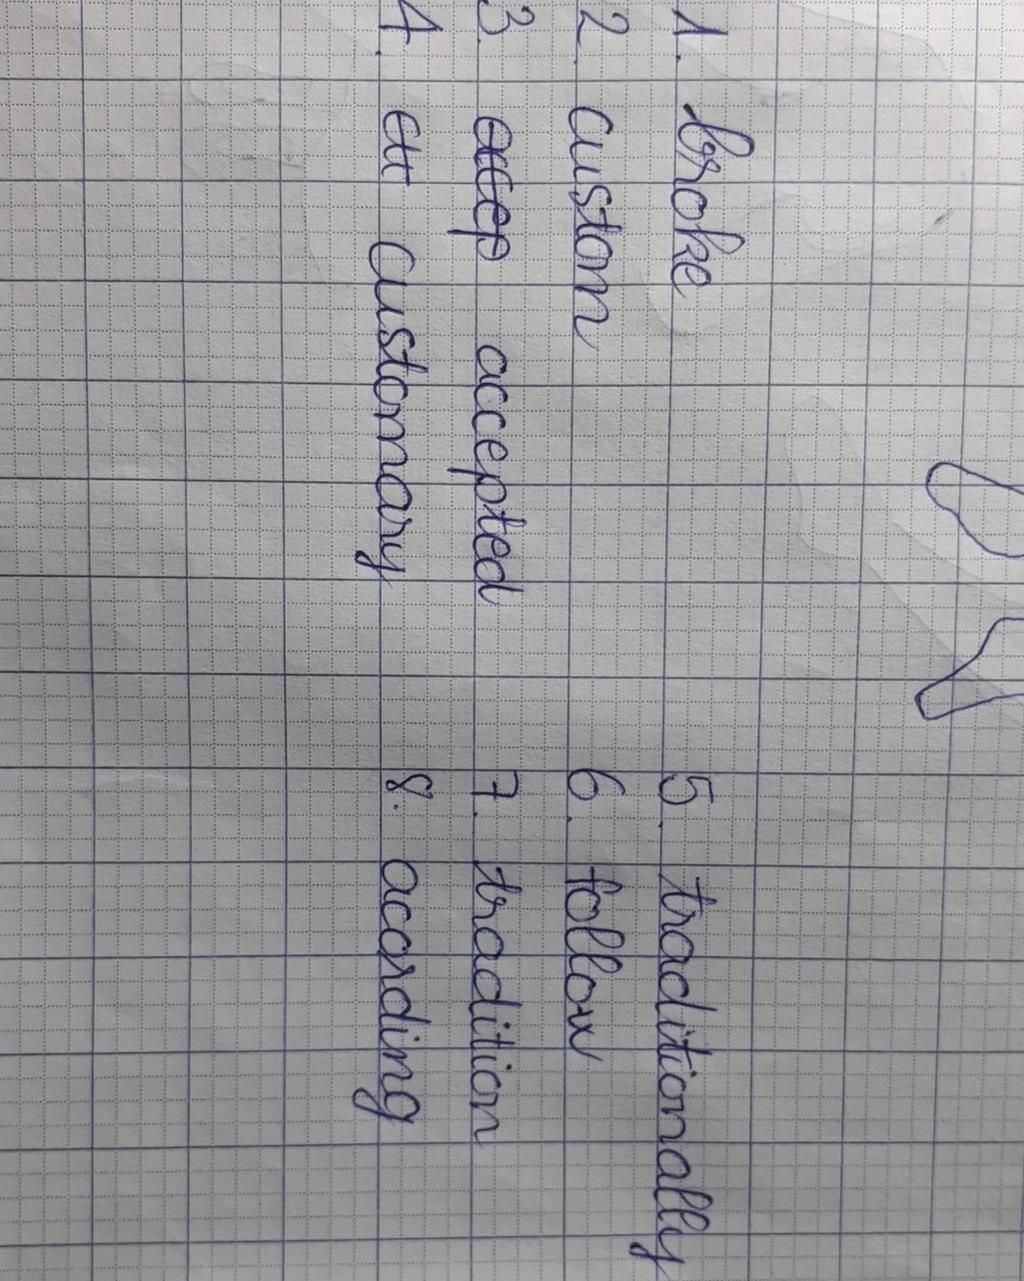 1. broke
2. custom
3. accep accepted
4. ctt customary
5. traditionally
6. follow
7. tradition
8. acording